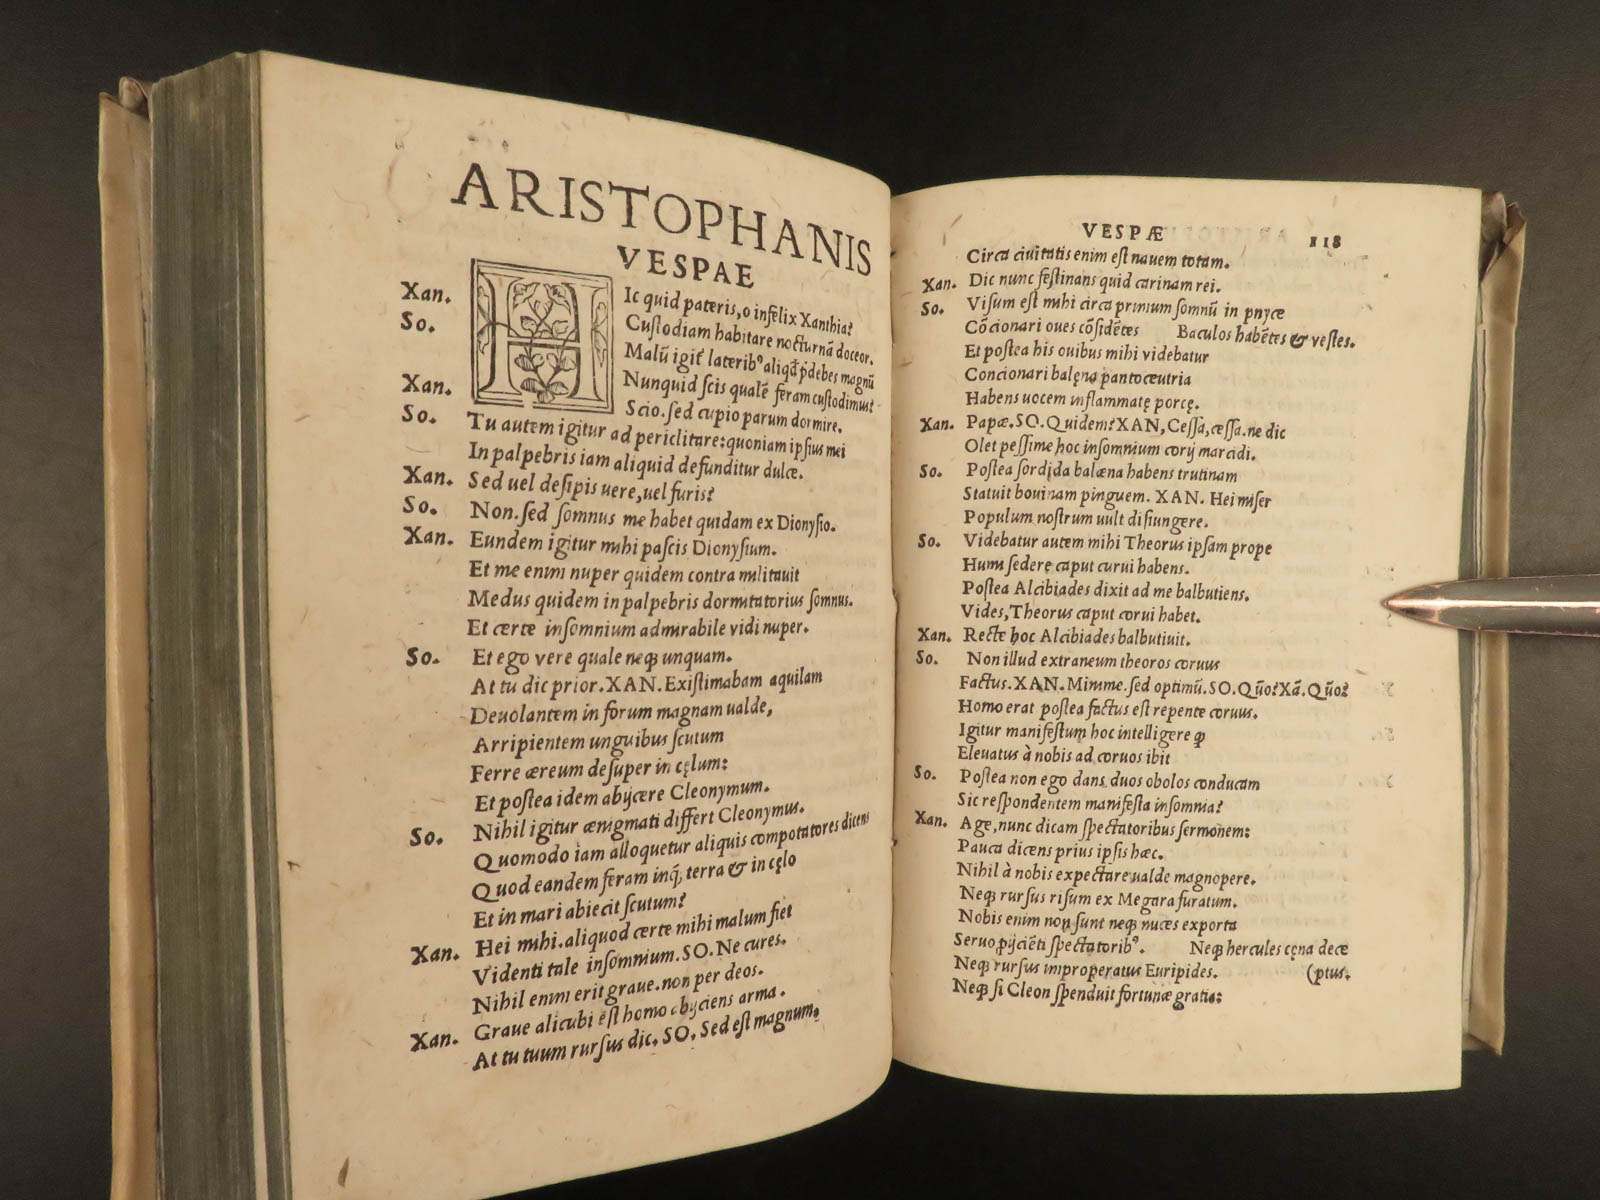 ARISTOPHANIS
VESPAE
Xan. HIc quid pateris,o infelix Xanthia?
So. Custodiam habitare nocturnā doceor.
Malū igit lateribꝰ aliqd p̱debes magnū
Xan. Nunquid scis qualē feram custodimus?
So. Scio.sed cupio parum dormire.
Tu autem igitur ad periclitare:quoniam ipsius mei
In palpebris iam aliquid defunditur dulce.
Xan. Sed uel desipis uere,uel furis?
So. Non.sed somnus me habet quidam ex Dionysio.
Xan. Eundem igitur mihi pascis Dionysium.
Et me enim nuper quidem contra militauit
Medus quidem in palpebris dormitatorius somnus.
Et certe insomnium admirabile vidi nuper.
So. Et ego vere quale neqꝫ unquam.
At tu dic prior.XAN.Existimabam aquilam
Deuolantem in forum magnam ualde,
Arripientem unguibus scutum
Ferre æreum desuper in cęlum:
Et postea idem abijcere Cleonymum.
So. Nihil igitur ænigmati differt Cleonymus.
Quomodo iam alloquetur aliquis compotatores dicens
Quod eandem feram inq̃, terra & in cęlo
Et in mari abiecit scutum?
Xan. Hei mihi.aliquod certe mihi malum fiet
Videnti tale insomnium.SO.Ne cures.
Nihil enim erit graue.non per deos.
Xan. Graue alicubi est homo abijciens arma.
At tu tuum rursus dic.SO.Sed est magnum.
VESPÆ 118
Circa ciuitatis enim est nauem totam.
Xan. Dic nunc festinans quid carinam rei.
So. Visum est mihi circa primum somnū in pnyce
Cōcionari oues cōsidētes Baculos habētes & vestes.
Et postea his ouibus mihi videbatur
Concionari balęna pantoceutria
Habens uocem inflammatę porcę.
Xan. Papæ.SO.Quidem?XAN,Cessa,cessa.ne dic
Olet pessime hoc insomnium corij marcidi.
So. Postea sordida balæna habens trutinam
Statuit bouinam pinguem.XAN.Hei miser
Populum nostrum uult disiungere.
So. Videbatur autem mihi Theorus ipsam prope
Humi sedere caput curui habens.
Postea Alcibiades dixit ad me balbutiens.
Vides,Theorus caput corui habet.
Xan. Recte hoc Alcibiades balbutiuit.
So. Non illud extraneum theoros coruus
Factus.XAN.Minime.sed optimū.SO.Quō?Xā.Quō?
Homo erat postea factus est repente coruus.
Igitur manifestum hoc intelligere ꝙ
Eleuatus à nobis ad coruos ibit
So. Postea non ego dans duos obolos conducam
Sic respondentem manifesta insomnia?
Xan. Age,nunc dicam spectatoribus sermonem:
Pauca dicens prius ipsis hæc.
Nihil à nobis expectare ualde magnopere.
Neqꝫ rursus risum ex Megara furatum.
Nobis enim non sunt neqꝫ nuces exporta
Seruo pijciēti spectatoribꝰ. Neqꝫ hercules cęna dece
Neqꝫ rursus improperatus Euripides. (ptus.
Neqꝫ si Cleon splenduit fortunæ gratia: